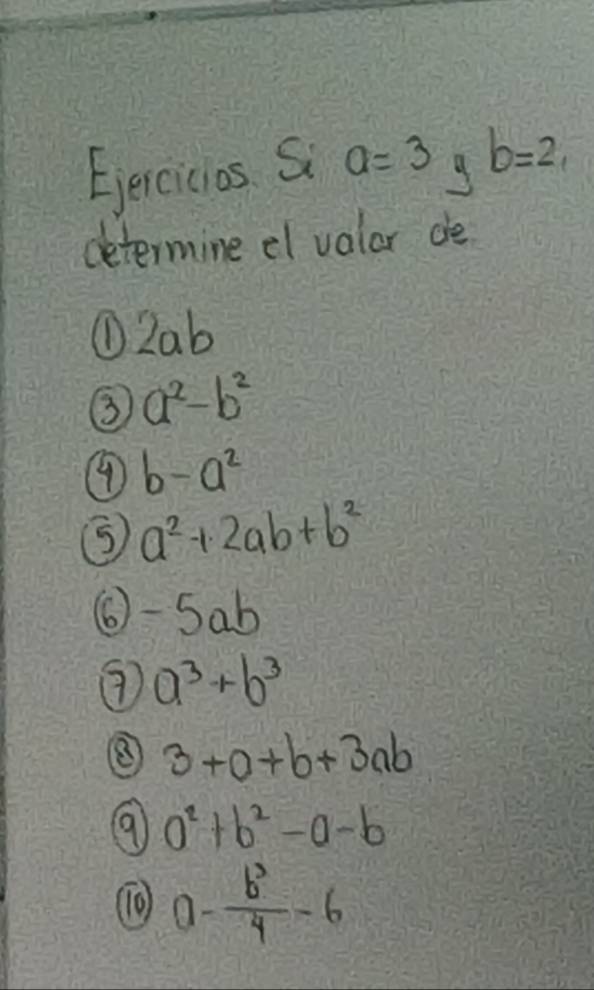 Ejercicios. Si a=3 y b=2,
determine el valor de
① 2ab
③ a²-b²
④ b-a²
⑤ a²+2ab+b²
⑥ -5ab
⑦ a³+b³
⑧ 3+a+b+3ab
⑨ a²+b²-a-b
⑩ a-b³/4-6